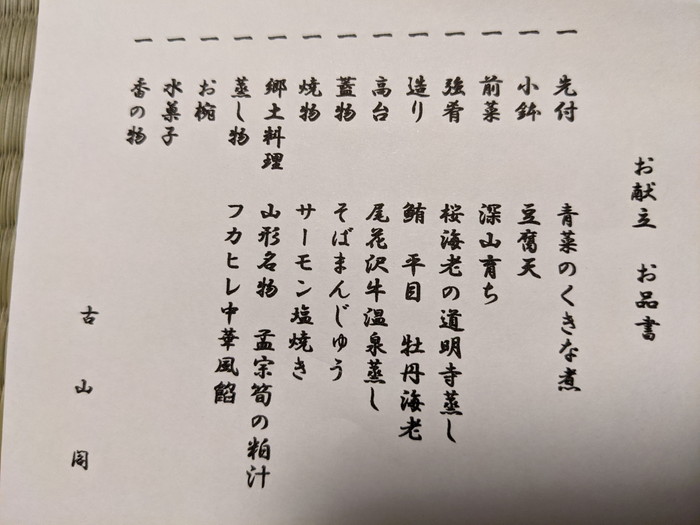 お献立　お品書
一　先付　青菜のくきな煮
一　小鉢　豆腐天
一　前菜　深山育ち
一　強肴　桜海老の道明寺蒸し
一　造り　鮪　平目　牡丹海老
一　高台　尾花沢牛温泉蒸し
一　蓋物　そばまんじゅう
一　焼物　サーモン塩焼き
一　郷土料理　山形名物　孟宗筍の粕汁
一　蒸し物　フカヒレ中華風餡
一　お椀
一　水菓子
一　香の物
古山閣